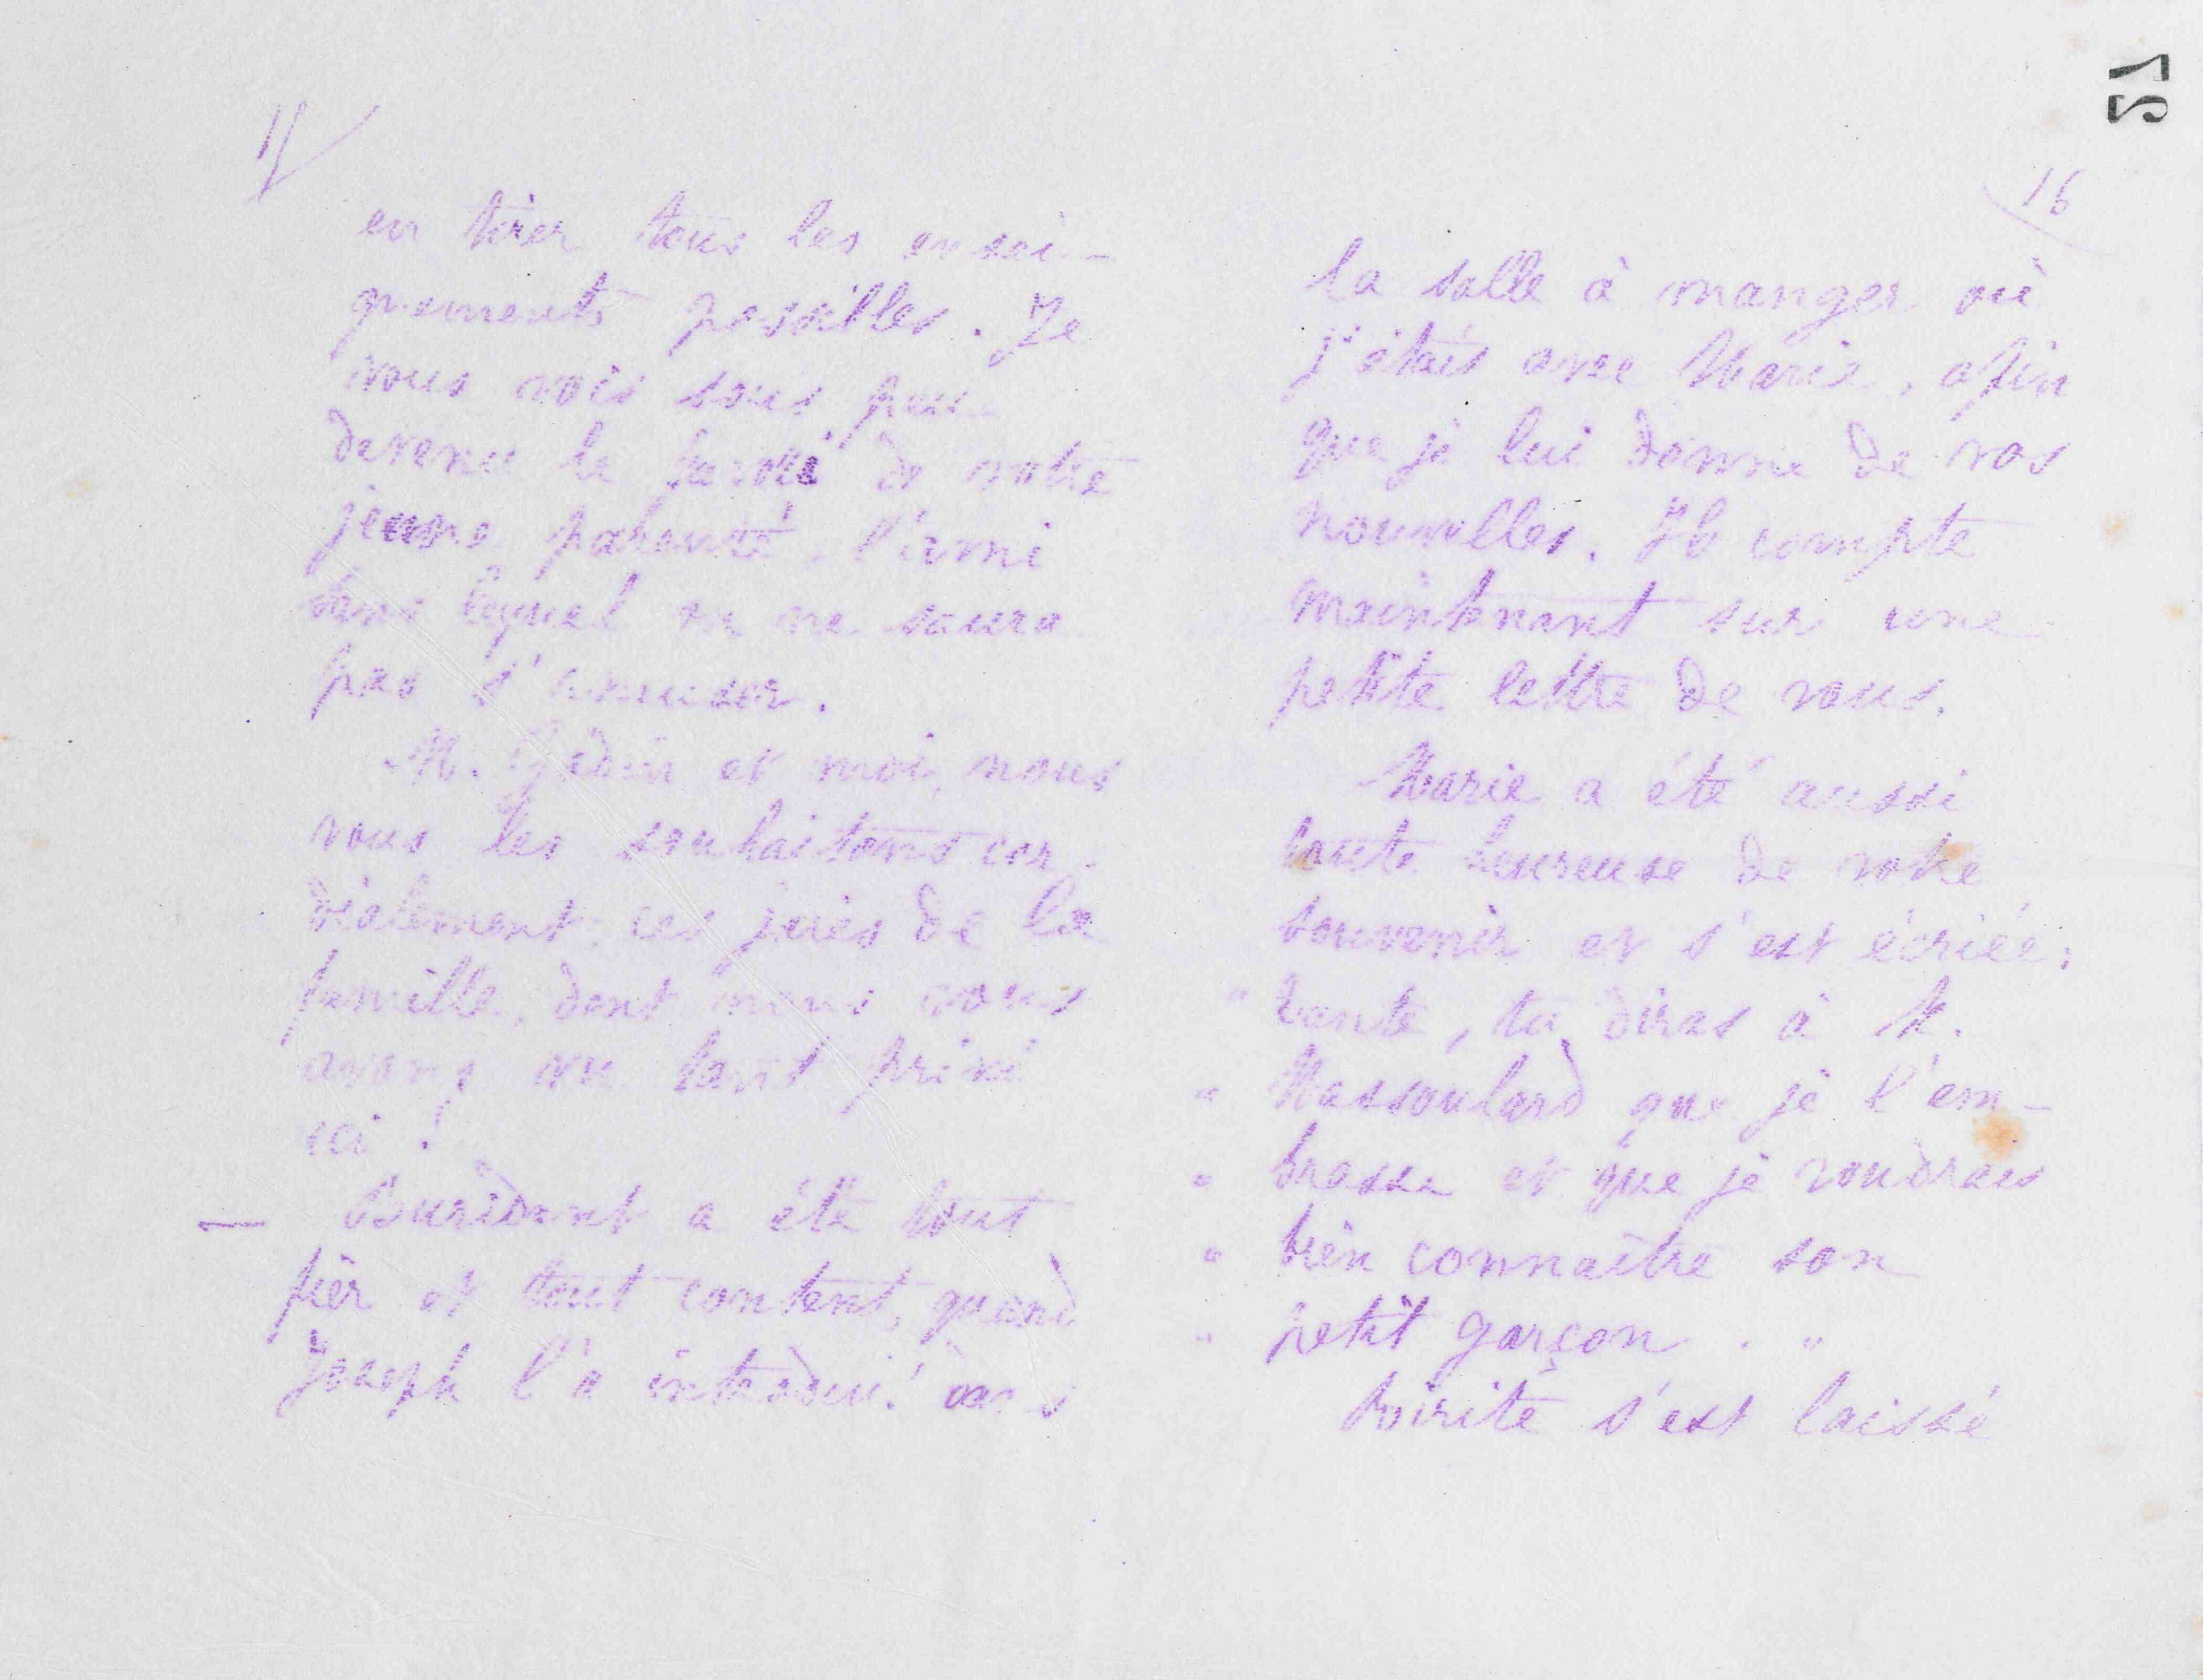 15
en tirer tous les ensei-
gnements possibles. Je
vous vois sous peu
devenu le favori de votre
jeune parenté, l'ami
sans lequel on ne saura
pas s'amuser.
M. Godin et moi, nous
vous les souhaitons cor-
dialement ces joies de la
famille, dont nous vous
avons vu tant privé
ici !
— Buridant a été tout
fier et tout content, quand
Joseph l'a introduit dans
51
16
la salle à manger où
j'étais avec Marie, afin
que je lui donne de vos
nouvelles. Il compte
maintenant sur une
petite lettre de vous.
Marie a été aussi
toute heureuse de votre
souvenir et s'est écriée:
" tante, tu diras à M.
" Massoulard que je l'em-
" brasse et que je voudrais
" bien connaître son
" petit garçon . "
s'est laissé